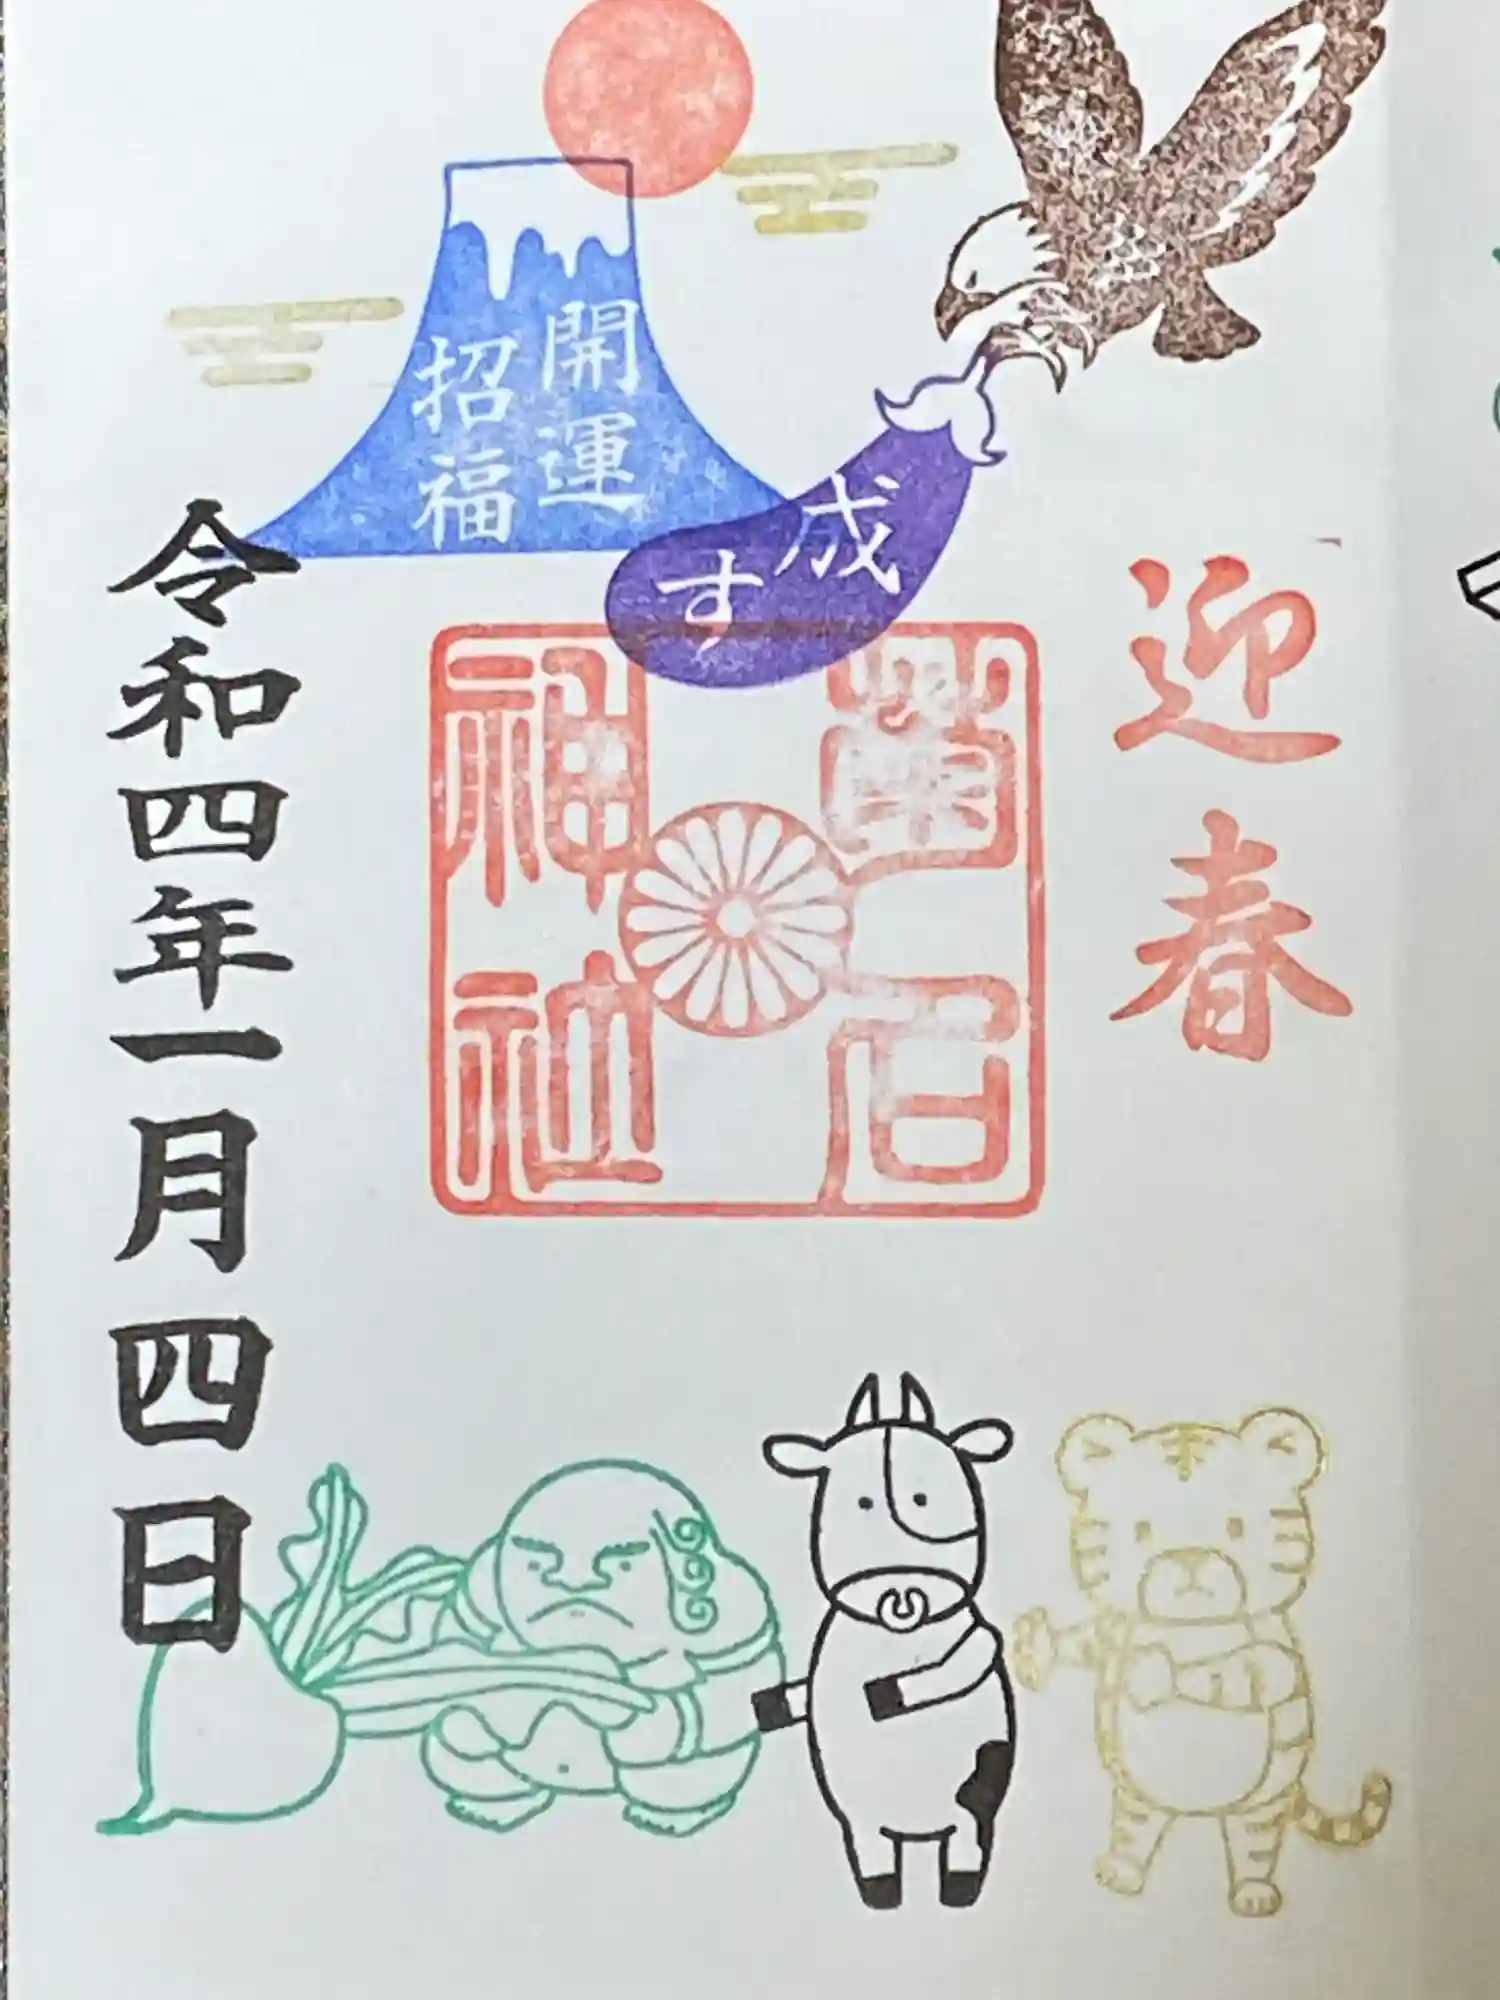 迎春
開運
招福
成す
菊名
神社
令和四年一月四日